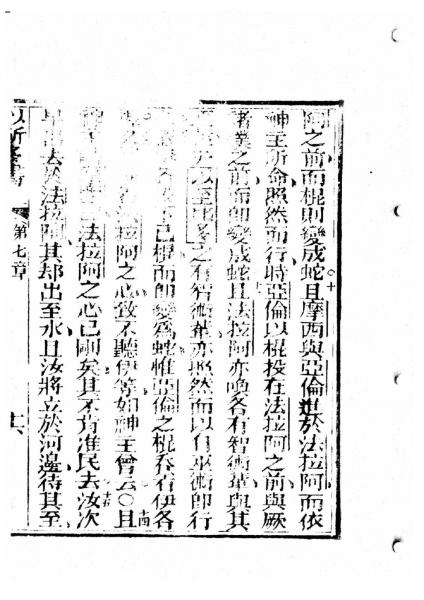 阿之前而棍則變成蛇且摩西與亞倫進於法拉阿而依
神主所命照然而行時亞倫以棍投在法拉阿之前與厥
者業之前而即變成蛇且法拉阿亦喚各有智術輩與其
以至比多之有智術輩亦照然而以自巫術即行
己棍而即變為蛇惟亞倫之棍吞有伊各
法拉阿之心致不聽伊等如神主曾云〇且
法拉阿之心已剛矣其不肯准民去汝次
早出去於法拉阿其却出至水且汝將立於河邊待其至
以所多書 第七章